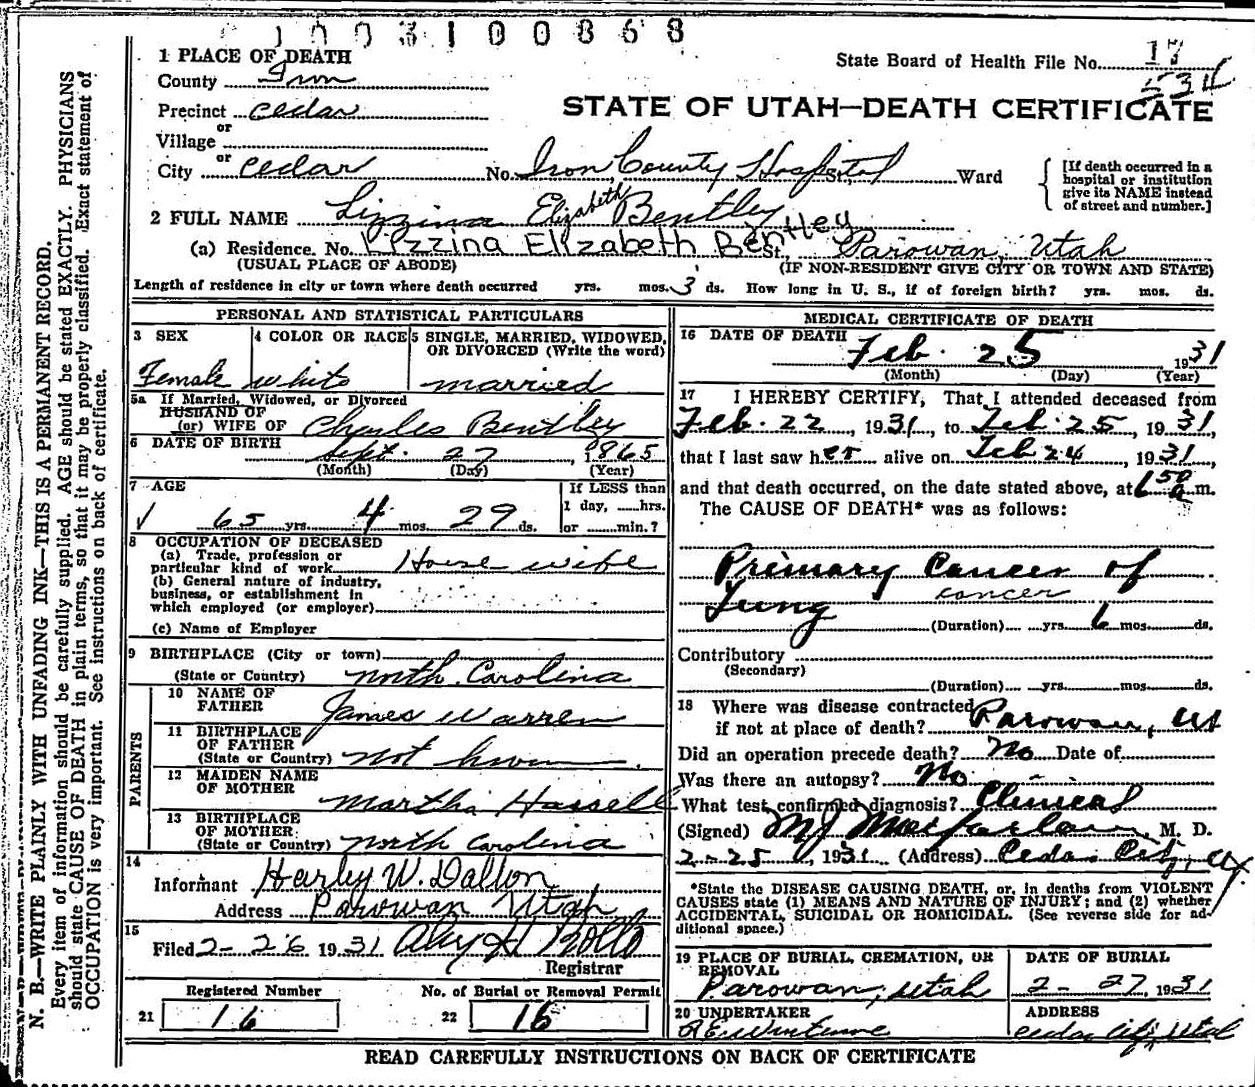 1003100868
1 PLACE OF DEATH
State Board of Health File No. 17
534
County Iron
STATE OF UTAH—DEATH CERTIFICATE
Precinct Cedar
or
Village
or
City Cedar No. Iron County Hospital St., Ward
[If death occurred in a hospital or institution give its NAME instead of street and number.]
2 FULL NAME Lizzina Elizabeth Bentley
(a) Residence. No. Lizzina Elizabeth Bentley St., Parowan, Utah
(USUAL PLACE OF ABODE) (IF NON-RESIDENT GIVE CITY OR TOWN AND STATE)
Length of residence in city or town where death occurred yrs. mos. 3 ds. How long in U. S., if of foreign birth? yrs. mos. ds.
PERSONAL AND STATISTICAL PARTICULARS
3 SEX 4 COLOR OR RACE 5 SINGLE, MARRIED, WIDOWED, OR DIVORCED (Write the word)
Female white married
5a If Married, Widowed, or Divorced
HUSBAND OF
(or) WIFE OF Charles Bentley
6 DATE OF BIRTH Sept. 27, 1865
(Month) (Day) (Year)
7 AGE If LESS than
1 day, hrs.
65 yrs. 4 mos. 29 ds. or min.?
8 OCCUPATION OF DECEASED
(a) Trade, profession or
particular kind of work House wife
(b) General nature of industry,
business, or establishment in
which employed (or employer)
(c) Name of Employer
9 BIRTHPLACE (City or town)
(State or Country) North Carolina
PARENTS
10 NAME OF
FATHER James Warren
11 BIRTHPLACE
OF FATHER
(State or Country) not known
12 MAIDEN NAME
OF MOTHER Martha Hassell
13 BIRTHPLACE
OF MOTHER:
(State or Country) North Carolina
14
Informant Harley W. Dalton
Address Parowan Utah
15
Filed 2-26 1931
Registrar
Registered Number No. of Burial or Removal Permit
21 16 22 16
MEDICAL CERTIFICATE OF DEATH
16 DATE OF DEATH Feb. 25 1931
(Month) (Day) (Year)
17 I HEREBY CERTIFY, That I attended deceased from
Feb. 22, 1931, to Feb. 25, 1931,
that I last saw her alive on Feb 24, 1931,
and that death occurred, on the date stated above, at 6 50 a m.
The CAUSE OF DEATH* was as follows:
Primary Cancer of
cancer
Lung
(Duration) yrs. 6 mos. ds.
Contributory
(Secondary)
(Duration) yrs. mos. ds.
18 Where was disease contracted
if not at place of death? Parowan, Ut
Did an operation precede death? No Date of
Was there an autopsy? No
What test confirmed diagnosis? Clinical
(Signed) M J Macfarlane, M. D.
2-25, 1931 (Address) Cedar City, Ut.
*State the DISEASE CAUSING DEATH, or, in deaths from VIOLENT
CAUSES state (1) MEANS AND NATURE OF INJURY; and (2) whether
ACCIDENTAL, SUICIDAL OR HOMICIDAL. (See reverse side for ad-
ditional space.)
19 PLACE OF BURIAL, CREMATION, OR REMOVAL DATE OF BURIAL
Parowan, Utah 2-27, 1931
20 UNDERTAKER ADDRESS
Cedar City, Utah
READ CAREFULLY INSTRUCTIONS ON BACK OF CERTIFICATE
N. B.—WRITE PLAINLY WITH UNFADING INK—THIS IS A PERMANENT RECORD.
Every item of information should be carefully supplied. AGE should be stated EXACTLY. PHYSICIANS
should state CAUSE OF DEATH in plain terms, so that it may be properly classified. Exact statement of
OCCUPATION is very important. See instructions on back of certificate.